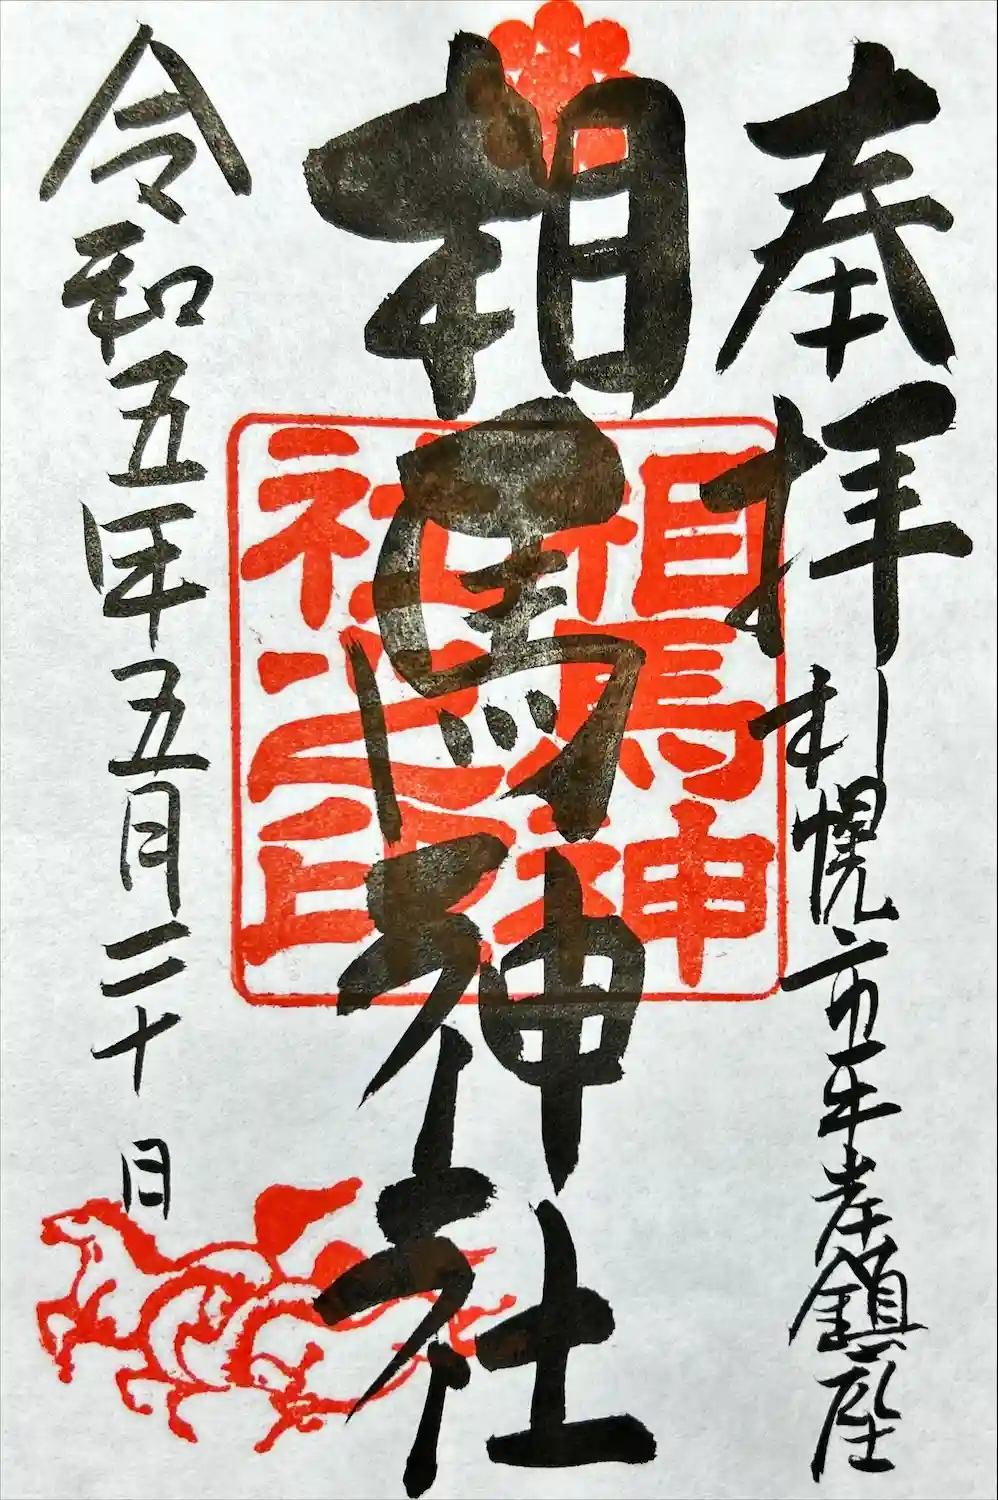 奉拝 札幌市平岸鎮座
相馬神社
令和五年五月二十日
相馬神
社之印